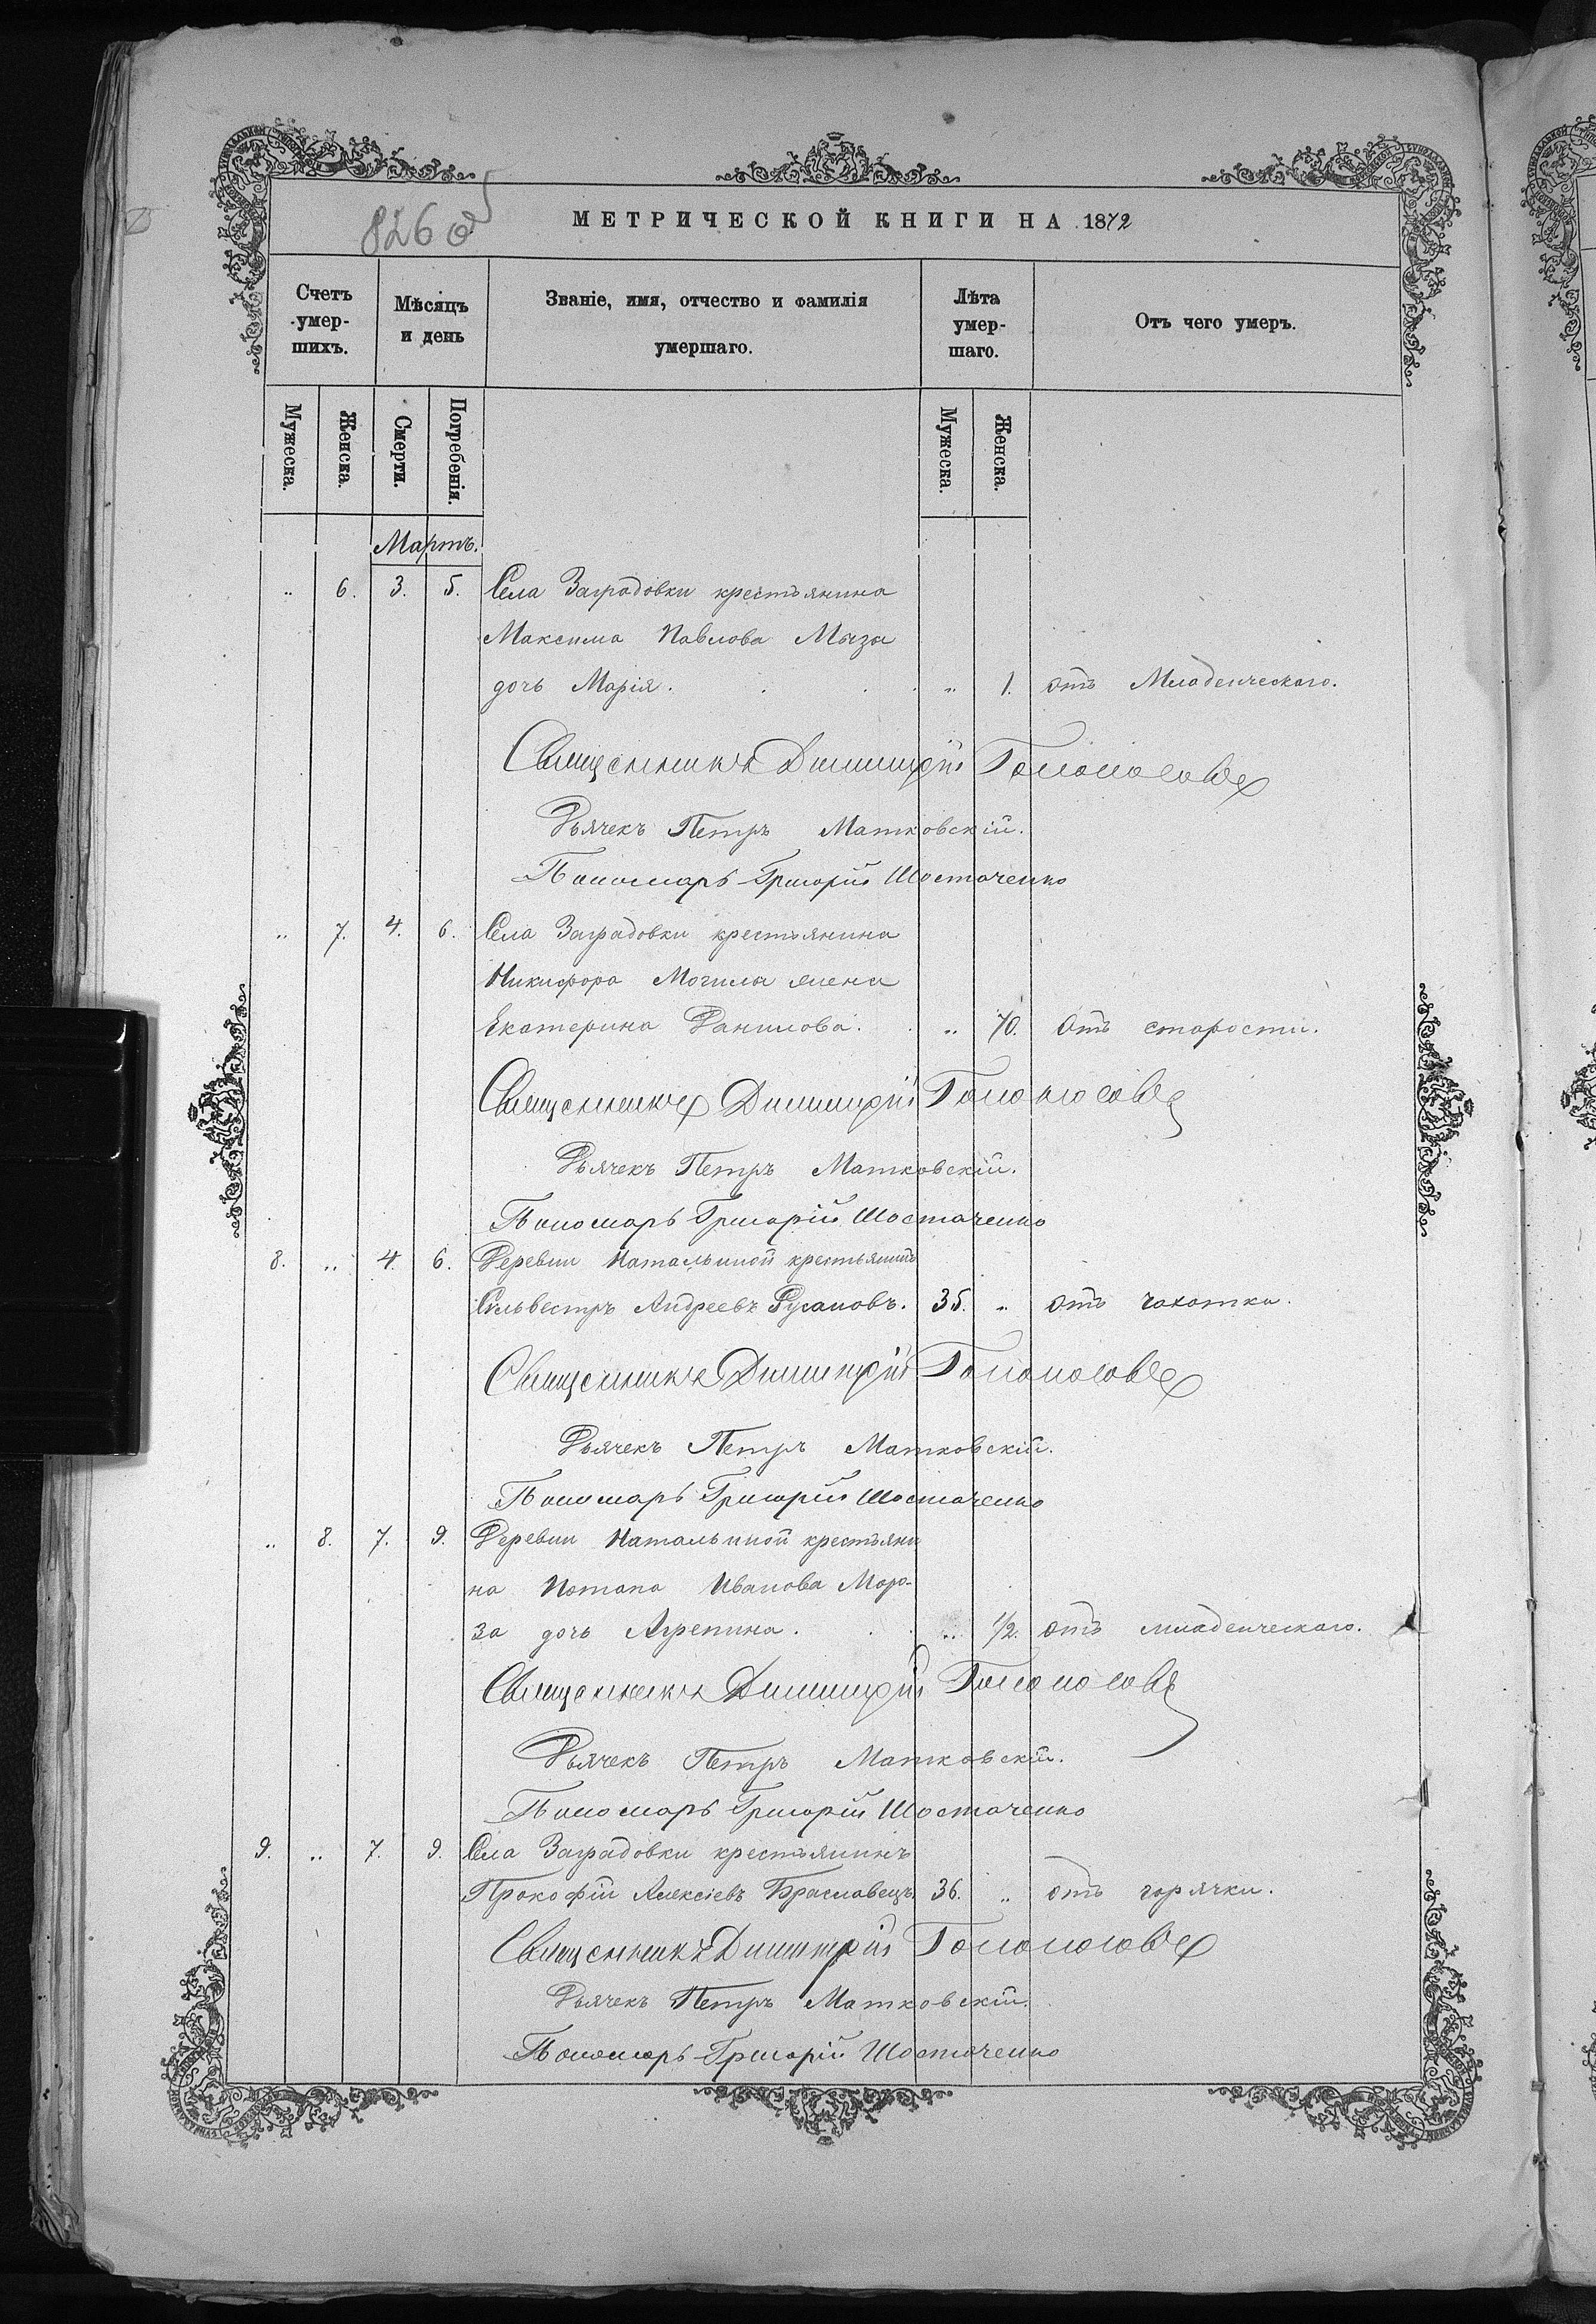 826 об
МЕТРИЧЕСКОЙ КНИГИ НА 1872
Счетъ умер-шихъ.
Мѣсяцъ и день
Званіе, имя, отчество и фамилія умершаго.
Лѣта умер-шаго.
Отъ чего умеръ.
Мужеска. Женска. Смерти. Погребенія. Мужеска. Женска.
Мартъ.
„ 6. 3. 5. Села Заградовки крестьянина
Максима Павлова Мыза
дочь Марія. „ 1. отъ Младенческаго.
Священникъ Димитрій Голоносовъ
Дьячекъ Петръ Матковскій.
Пономарь Григорій Шостаченко
„ 7. 4. 6. Села Заградовки крестьянина
Никифора Могилы жена
Екатерина Данилова. „ 70. Отъ старости.
Священникъ Димитрій Голоносовъ
Дьячекъ Петръ Матковскій.
Пономарь Григорій Шостаченко
8. „ 4. 6. Деревни Натальиной крестьянинъ
Сильвестръ Андреевъ Русановъ. 35. „ отъ чахотки.
Священникъ Димитрій Голоносовъ
Дьячекъ Петръ Матковскій.
Пономарь Григорій Шостаченко
„ 8. 7. 9. Деревни Натальиной крестьяни
на Потапа Иванова Моро-
за дочь Агрепина. „ 1/2. отъ младенческаго.
Священникъ Димитрій Голоносовъ
Дьячекъ Петръ Матковскій.
Пономарь Григорій Шостаченко
9. „ 7. 9. Села Заградовки крестьянинъ
Прокофій Алексіевъ Браславецъ 36. „ отъ горячки.
Священникъ Димитрій Голоносовъ
Дьячекъ Петръ Матковскій.
Пономарь Григорій Шостаченко